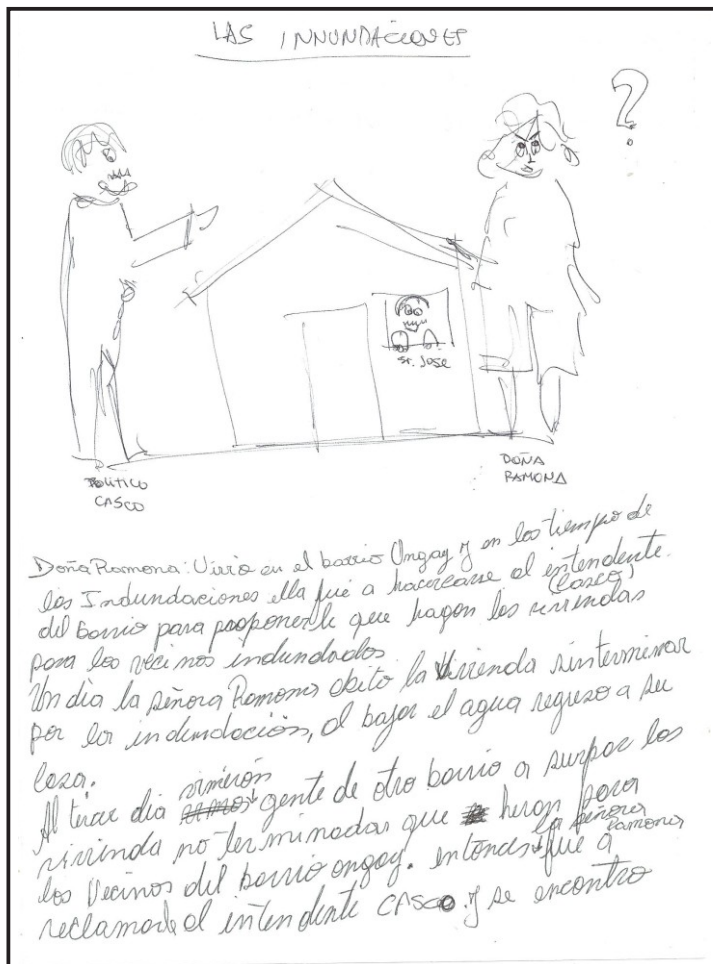 LAS INNUNDACIONES
?
Sr. Jose
POLITICO
CASCO
DOÑA
RAMONA
Doña Ramona: Vivio en el barrio Ongay y en los tiempo de
las Indundaciones ella fué a hacercarse al intendente.
(Casco)
del barrio para proponerle que hagan las viviendas
para los vecinos indundados
Un dia la señora Ramona ebito la vivienda sinterminar
por la indundación, al bajar el agua regreso a su
casa.
Al tercer dia vinierón gente de otro barrio a surpar las
vivienda no terminadas que heran para
la señora
Ramona
los Vecinos del barrio ongay. entonces fué a
reclamarle al intendente CASCO y se encontro